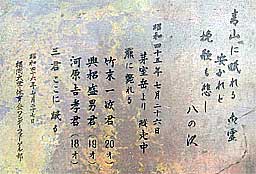 青山に眠れる 御霊
安かれと
挽鐘も想一
八の沢
昭和四十五年七月二十六日
芽室岳より 縦走中
羆に斃れる
竹末一敏君（20才）
興梠盛男君（19才）
河原吉孝君（18才）
三君ここに眠る
昭和四六年七月二十六日
福岡大学体育会ワンダーフォーゲル部